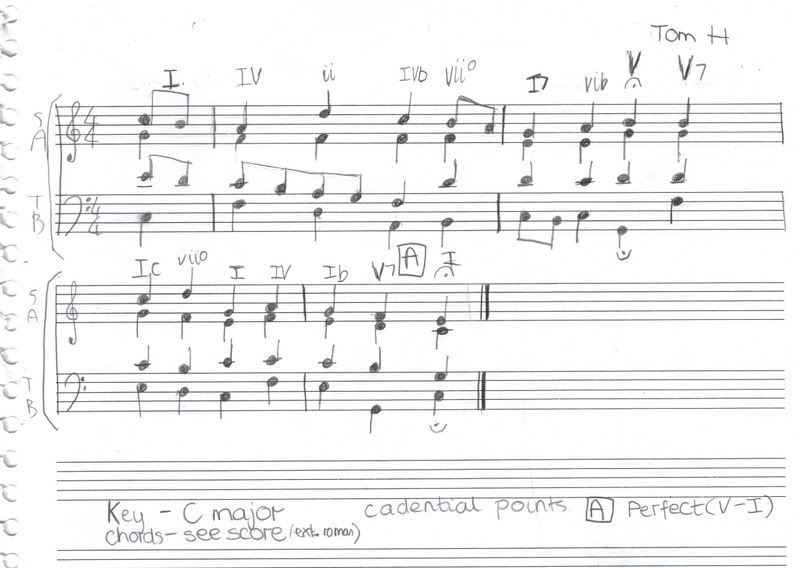 Tom H
I IV ii IVb vii° I7 vib V V7
S
A
4
4
T
B
4
4
Ic vii° I IV Ib V7 A I
S
A
T
B
Key - C major cadential points A Perfect (V-I)
chords - see score (ext. roman)